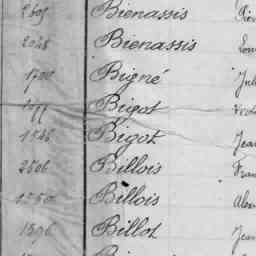 Bienassis
2028 Bienassis
Bigné Jul
Bigot
1586 Bigot Jean
2506 Billois Fran
1550 Billois Alex
1396 Billot Jean